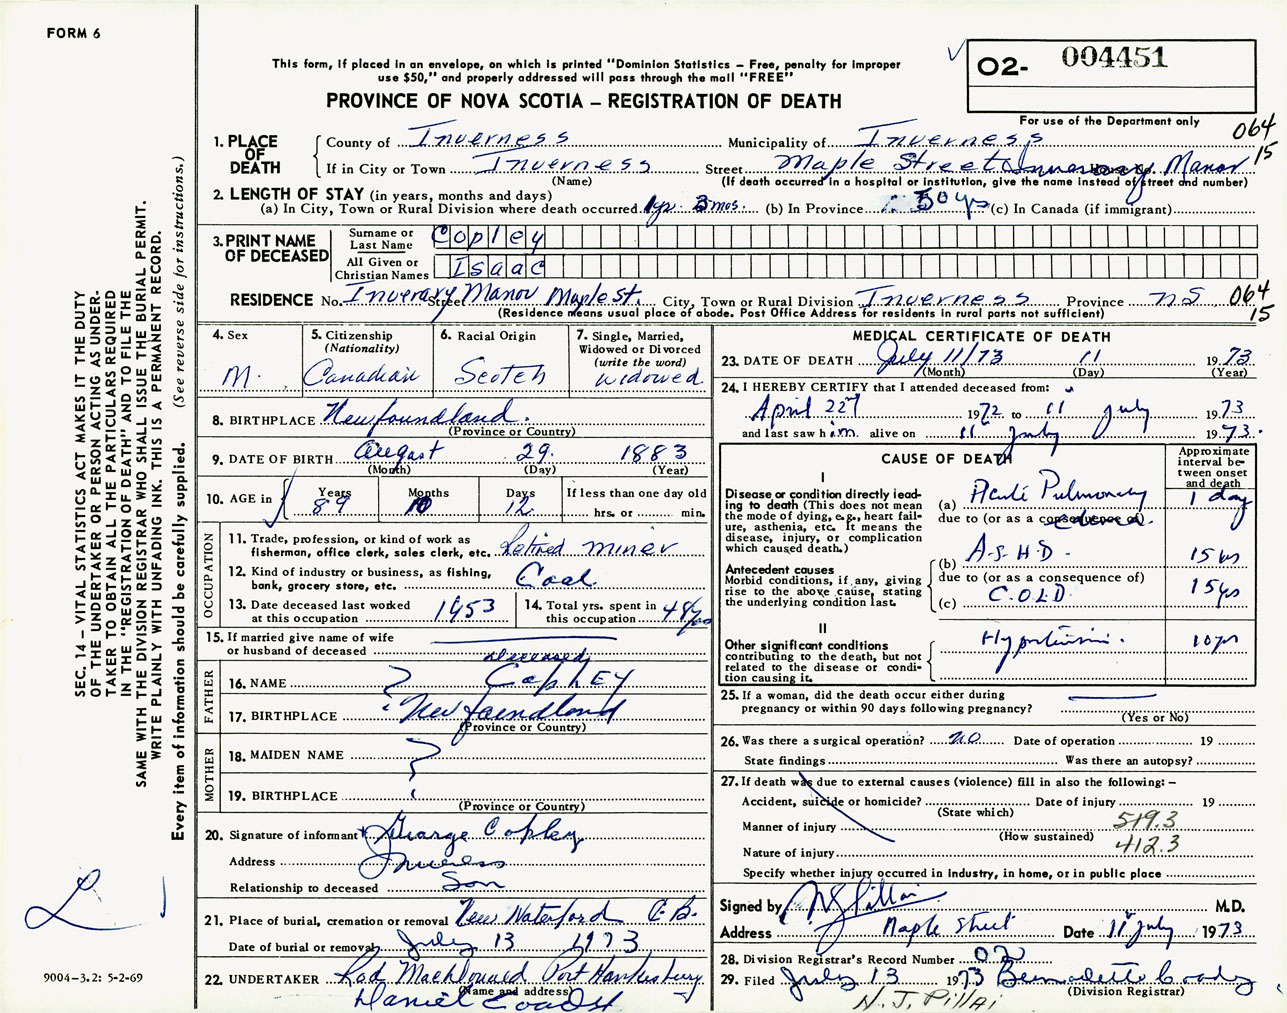 FORM 6
This form, if placed in an envelope, on which is printed "Dominion Statistics – Free, penalty for improper
use $50," and properly addressed will pass through the mail "FREE"
PROVINCE OF NOVA SCOTIA – REGISTRATION OF DEATH
02- 004451
For use of the Department only
064
15
1. PLACE OF DEATH
County of Inverness Municipality of Inverness
If in City or Town Inverness Street Maple Street Inverary Manor
(Name) (If death occurred in a hospital or institution, give the name instead of street and number)
2. LENGTH OF STAY (in years, months and days)
(a) In City, Town or Rural Division where death occurred 1yr. 3mos. (b) In Province 50 yrs (c) In Canada (if immigrant)
3. PRINT NAME OF DECEASED
Surname or Last Name Copley
All Given or Christian Names Isaac
RESIDENCE No. Inverary Street Manor Maple St. City, Town or Rural Division Inverness Province NS 064
15
(Residence means usual place of abode. Post Office Address for residents in rural parts not sufficient)
4. Sex M.
5. Citizenship (Nationality) Canadian
6. Racial Origin Scotch
7. Single, Married, Widowed or Divorced (write the word) widowed
8. BIRTHPLACE Newfoundland.
(Province or Country)
9. DATE OF BIRTH August 29. 1883
(Month) (Day) (Year)
10. AGE in Years 89 Months 10 Days 12 If less than one day old
hrs. or min.
OCCUPATION
11. Trade, profession, or kind of work as
fisherman, office clerk, sales clerk, etc. Retired miner
12. Kind of industry or business, as fishing,
bank, grocery store, etc. Coal
13. Date deceased last worked
at this occupation 1953
14. Total yrs. spent in
this occupation 48 yrs
15. If married give name of wife
or husband of deceased deceased
FATHER
16. NAME ? Copley
17. BIRTHPLACE Newfoundland
(Province or Country)
MOTHER
18. MAIDEN NAME ?
19. BIRTHPLACE
(Province or Country)
20. Signature of informant x George Copley
Address Inverness
Relationship to deceased Son
21. Place of burial, cremation or removal New Waterford C.B.
Date of burial or removal July 13 1973
22. UNDERTAKER Rod MacDonald Port Hawkesbury
(Name and address)
Daniel Coady
MEDICAL CERTIFICATE OF DEATH
23. DATE OF DEATH July 11/73 11 1973
(Month) (Day) (Year)
24. I HEREBY CERTIFY that I attended deceased from:
April 22 1972 to 11 July 1973
and last saw him alive on 11 July 1973.
CAUSE OF DEATH
Approximate interval between onset and death
I
Disease or condition directly leading to death (This does not mean the mode of dying, e.g., heart failure, asthenia, etc. It means the disease, injury, or complication which caused death.)
(a) Acute Pulmonary 1 day
due to (or as a consequence of) edema.
Antecedent causes
Morbid conditions, if any, giving rise to the above cause, stating the underlying condition last.
(b) A.S.H.D. 15 yrs
due to (or as a consequence of)
(c) C.O.L.D. 15 yrs
II
Other significant conditions
contributing to the death, but not related to the disease or condition causing it.
Hypertension. 10 yrs
25. If a woman, did the death occur either during
pregnancy or within 90 days following pregnancy?
(Yes or No)
26. Was there a surgical operation? no Date of operation 19
State findings Was there an autopsy?
27. If death was due to external causes (violence) fill in also the following: –
Accident, suicide or homicide? Date of injury 19
(State which)
Manner of injury 519.3
(How sustained)
412.3
Nature of injury
Specify whether injury occurred in industry, in home, or in public place
Signed by NJ Pillai M.D.
Address Maple Street Date 11 July 1973
28. Division Registrar's Record Number 02
29. Filed July 13 1973 Bernadette Coady
(Division Registrar)
N. J. Pillai
SEC. 14 – VITAL STATISTICS ACT MAKES IT THE DUTY
OF THE UNDERTAKER OR PERSON ACTING AS UNDER-
TAKER TO OBTAIN ALL THE PARTICULARS REQUIRED
IN THE "REGISTRATION OF DEATH" AND TO FILE THE
SAME WITH THE DIVISION REGISTRAR WHO SHALL ISSUE THE BURIAL PERMIT.
WRITE PLAINLY WITH UNFADING INK. THIS IS A PERMANENT RECORD.
Every item of information should be carefully supplied. (See reverse side for instructions.)
9004–3.2: 5-2-69